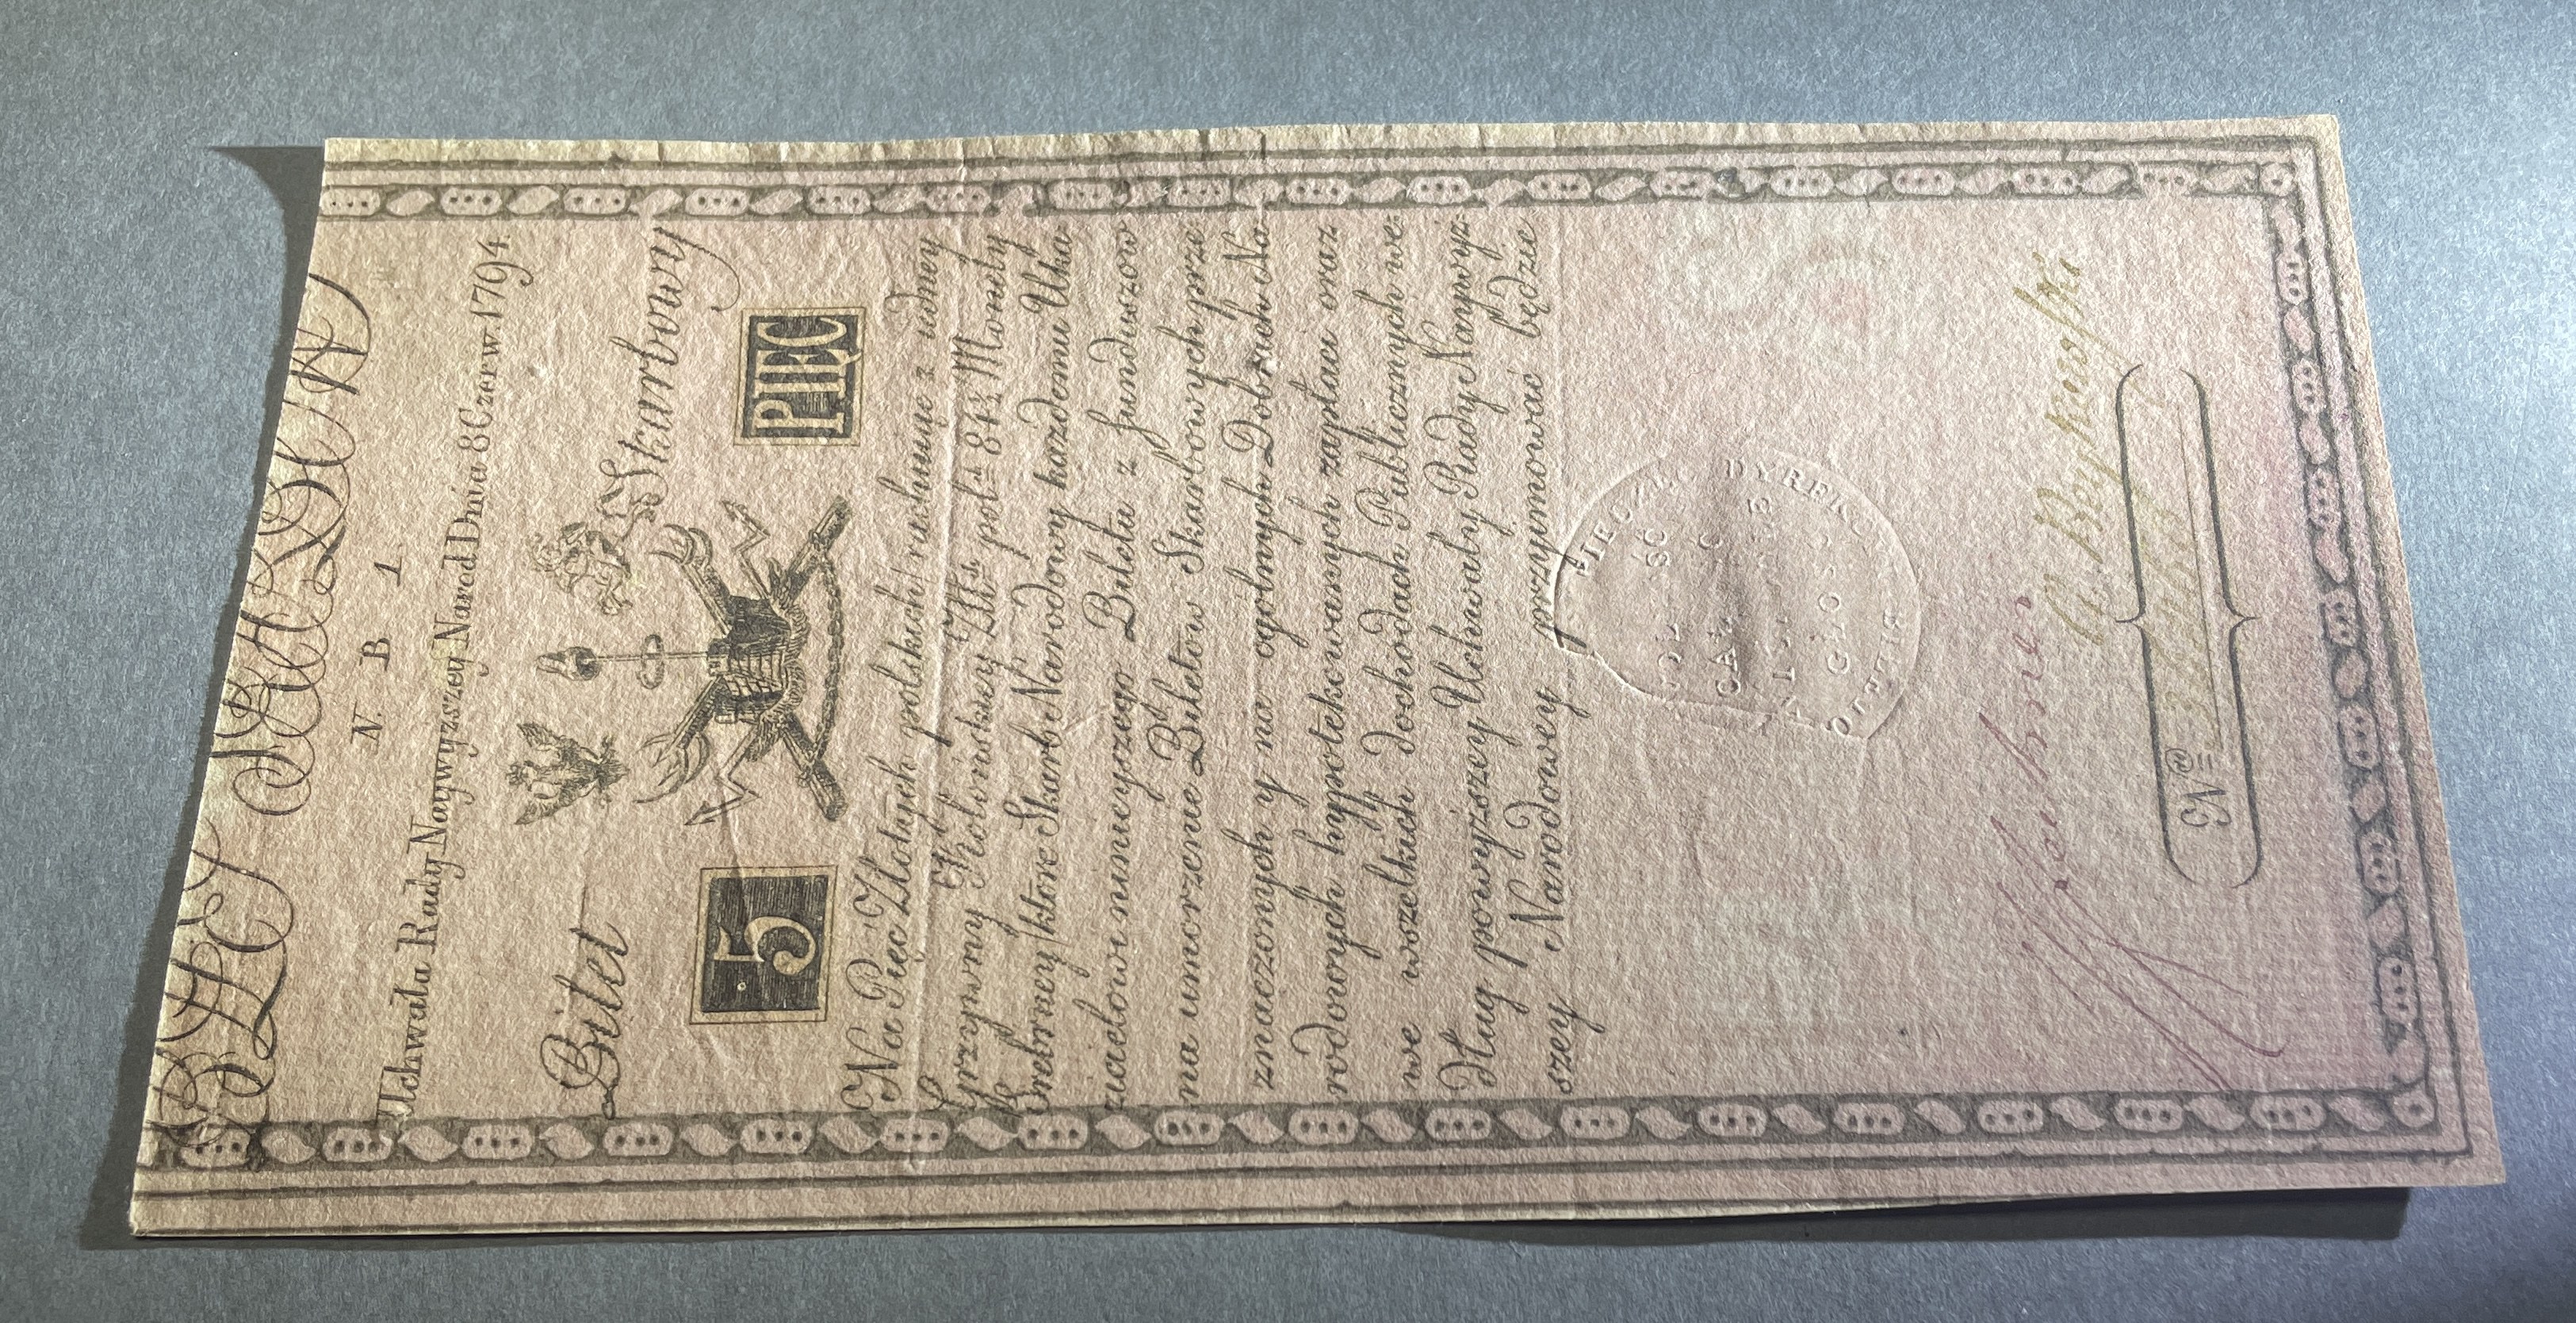 N. B 1.
Uchwała Rady Naywyzszey Narod Dnia 8 Czerw. 1794.
Bilet Skarbowy
5 PIĘĆ
Na Pięć Złotych polskich rachuiąc z iedney
Grzywny Kolońskiey Złt. pol. 84½ Monety
Srebrney ktore Skarb Narodowy kazdemu Uka
zicielowi ninieyszego Biletu z funduszow
na umorzenie Biletow Skarbowych prze
znaczonych y na ogolnych Dobrach Na
rodowych hyppotekowanych zapłaci oraz
we wszelkich dochodach Publicznych we
dług powyższey Uchwały Rady Naywyż
szey Narodowey przyimować będzie
PIECZĘC DYREKCYI BILETOW
A. Reykowski
N